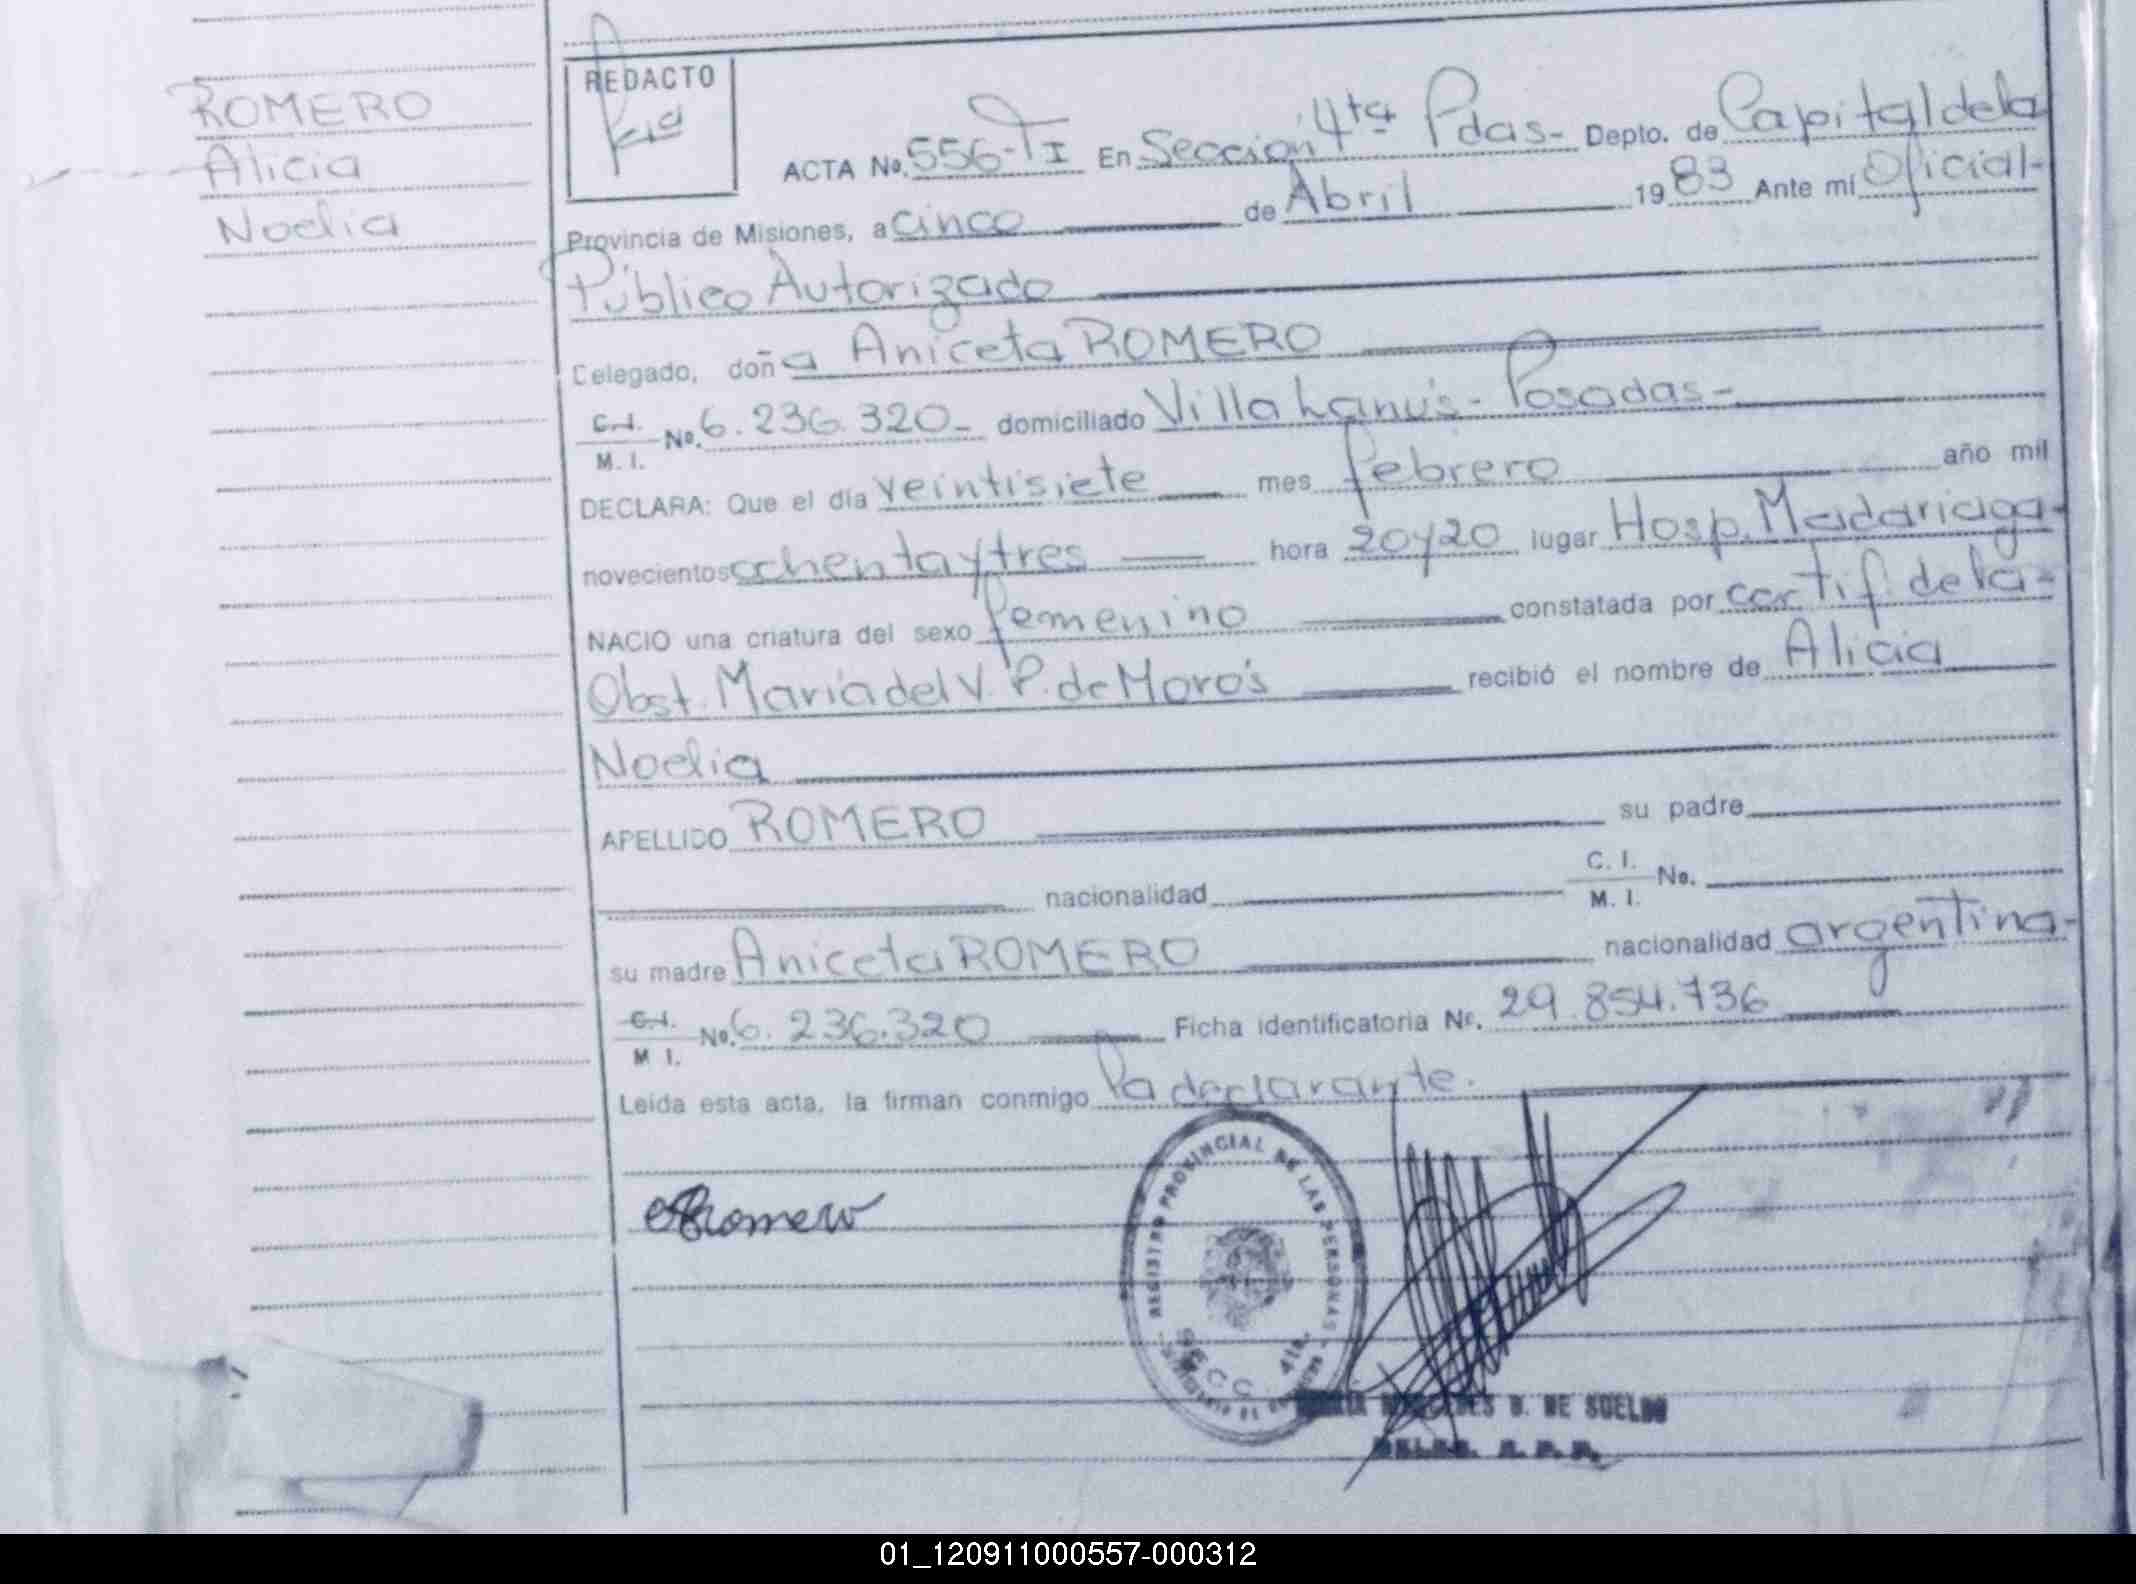 ROMERO
Alicia
Noelia
REDACTO
ACTA No. 556-TI En Sección 4ta Pdas- Depto. de Capital de la
Provincia de Misiones, a cinco de Abril 1983 Ante mí Oficial-
Público Autorizado
Delegado, doña Aniceta ROMERO
C.I.
M. I. No. 6.236.320- domiciliado Villa Lanús- Posadas-
DECLARA: Que el día veintisiete mes febrero año mil
novecientos ochenta y tres hora 20y20 lugar Hosp. Madariaga-
NACIO una criatura del sexo femenino constatada por certif. de la-
Obst. María del V. P. de Moro's recibió el nombre de Alicia
Noelia
APELLIDO ROMERO su padre
nacionalidad C. I.
M. I. No.
su madre Aniceta ROMERO nacionalidad argentina-
C.I.
M I. No. 6.236.320 Ficha identificatoria Nr. 29.854.736
Leída esta acta, la firman conmigo la declarante.
ARomero
REGISTRO PROVINCIAL DE LAS PERSONAS
SECC. 4ta.
D. DE SUELDO
01_120911000557-000312